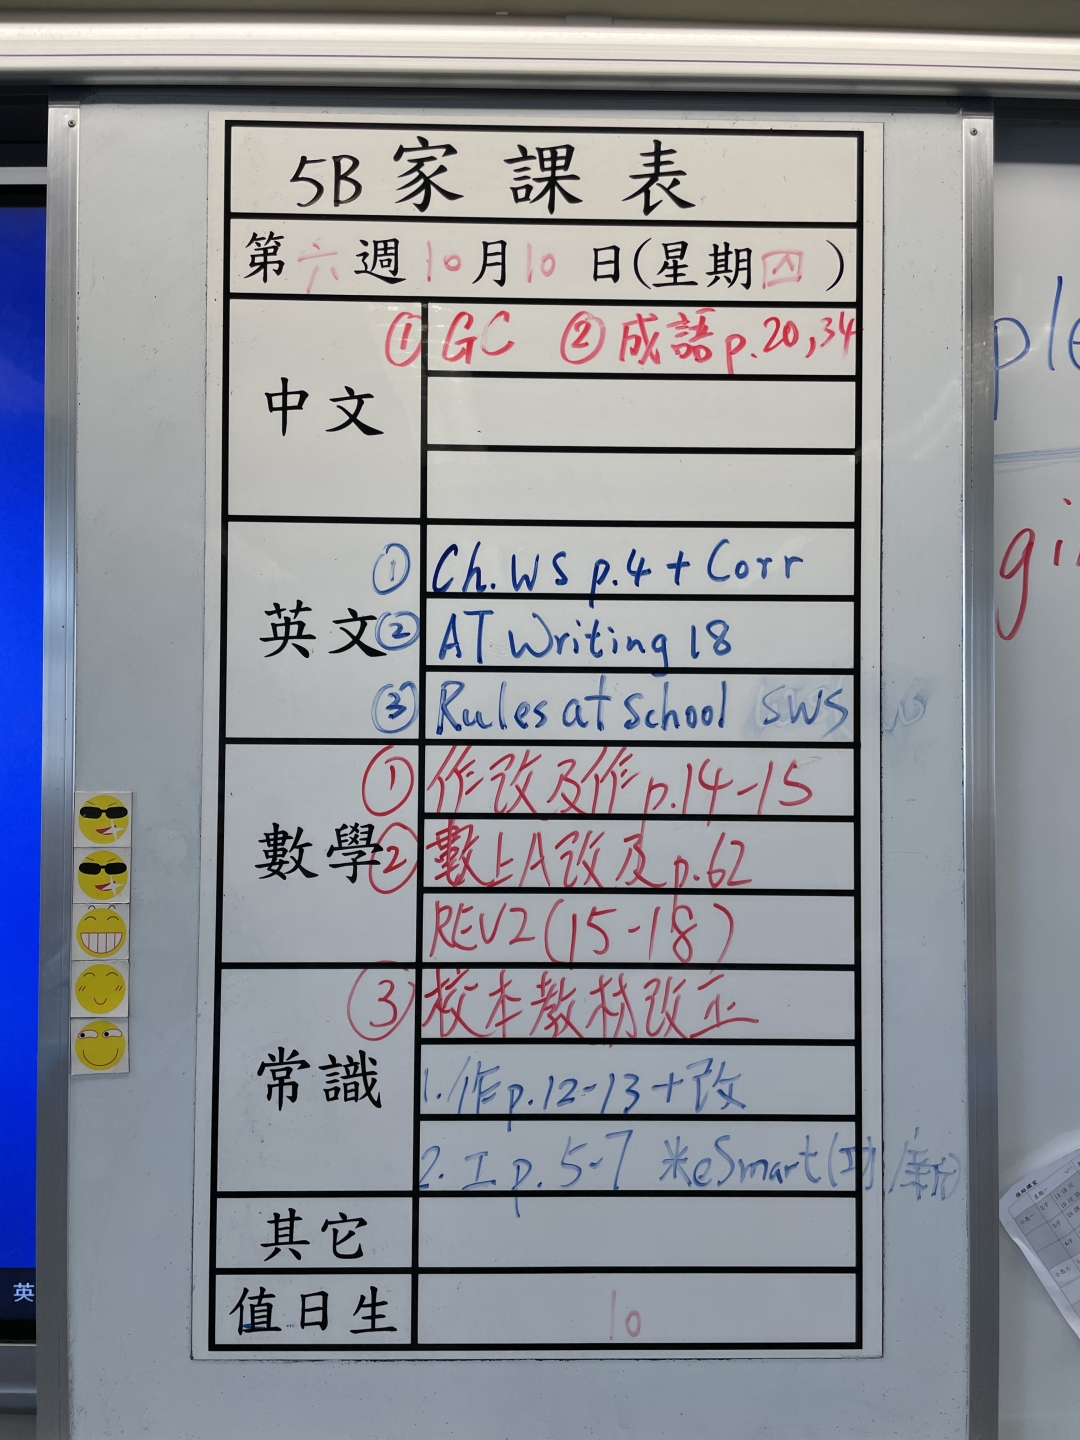 5B家課表
第六週10月10日(星期四)
中文
① GC ② 成語p.20,34
英文
① Ch.WS p.4 + Corr
② AT Writing 18
③ Rules at school SWS
數學
① 作改及作p.14-15
② 數上A改及p.62
REV2(15-18)
③ 校本教材改正
常識
1.作p.12-13+改
2.工p.5-7 米eSmart(功/新)
其它
值日生
10
ple
gi
英